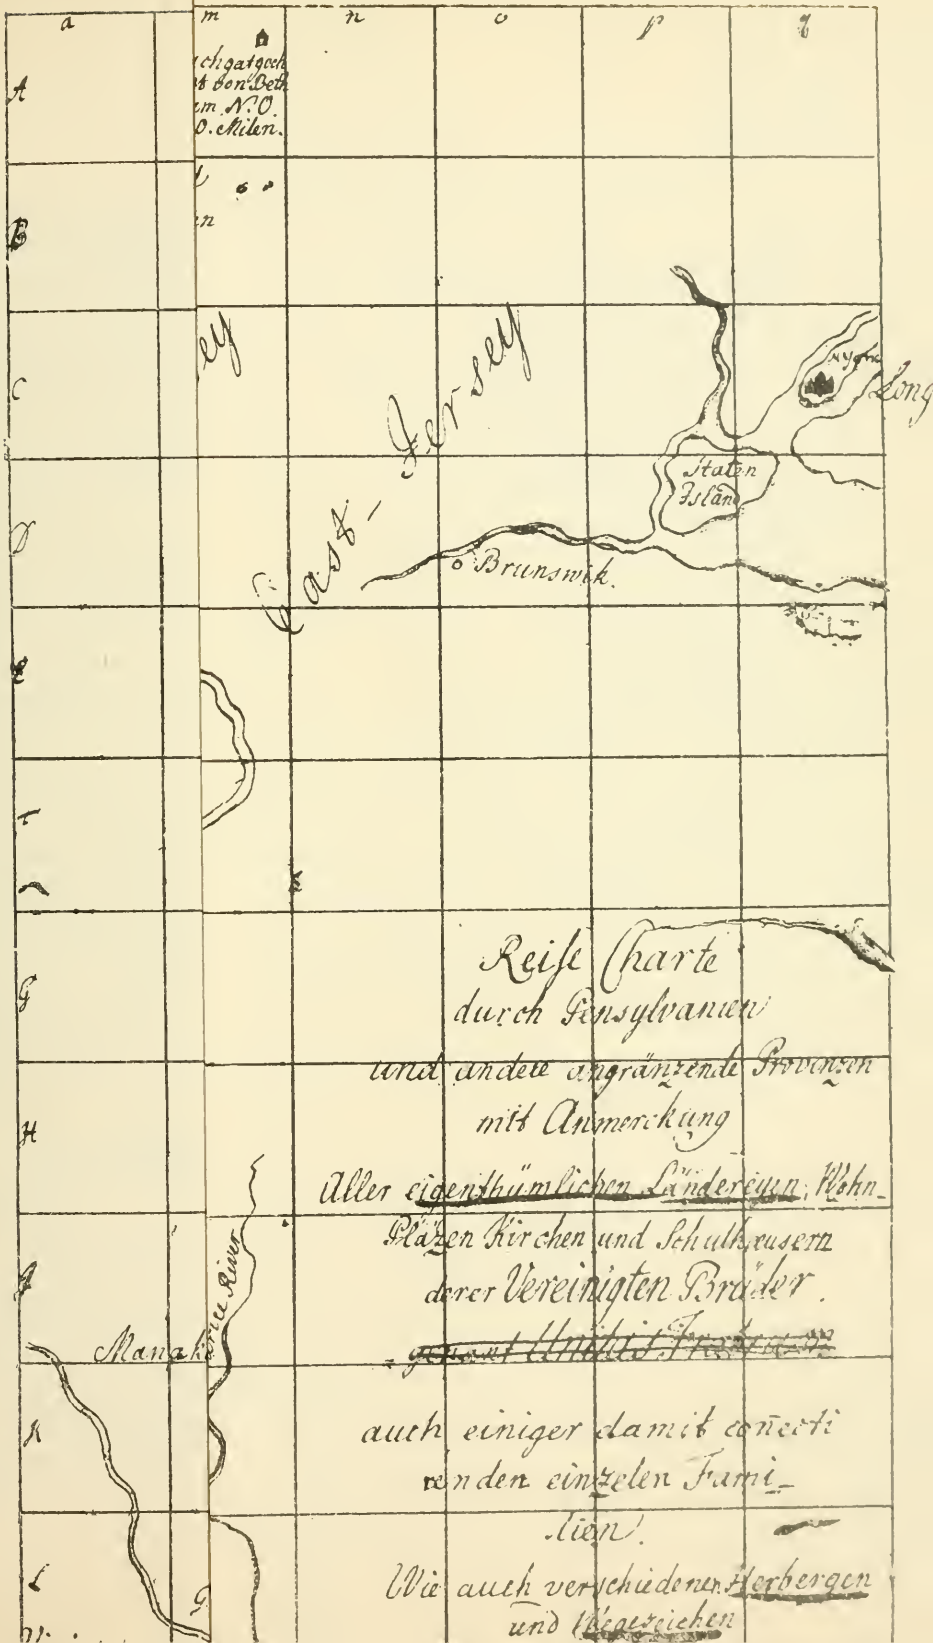 a m n o p q
A
B
C
D
E
F
G
H
J
K
L
chgatgoch
von Beth
N.O.
0. Milen.
ey
East-Jersey
N York
Long
Staten
Island
Brunswik.
Reise Charte
durch Pensylvanien
und andere angränzende Provinzen
mit Anmerckung
Aller eigenthümlichen Ländereyen, Wohn-
Pläzen Kirchen und Schulhæusern
derer Vereinigten Brüder.
genant Unitas Fratrum
auch einiger damit coñecti
renden einzelen Fami-
lien.
Wie auch verschiedenen Herbergen
und Wegezeichen
rice River
Manak